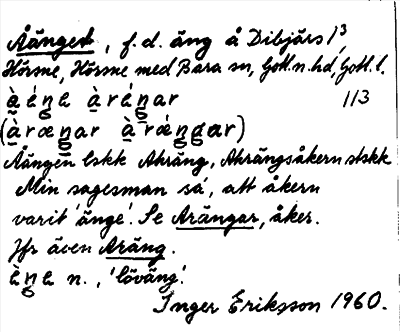 Åänget, f.d. äng å Dibjärs 1³,
Hörsne, Hörsne med Bara sn, Gotl. n. hd, Gotl. l.
113
Åängen lskk Ahräng, Ahrängsåkern stskk
Min sagesman sa, att åkern
varit 'änge'. Se Arängar, åker.
Jfr även Aräng.
n., 'löväng'.
Inger Eriksson 1960.